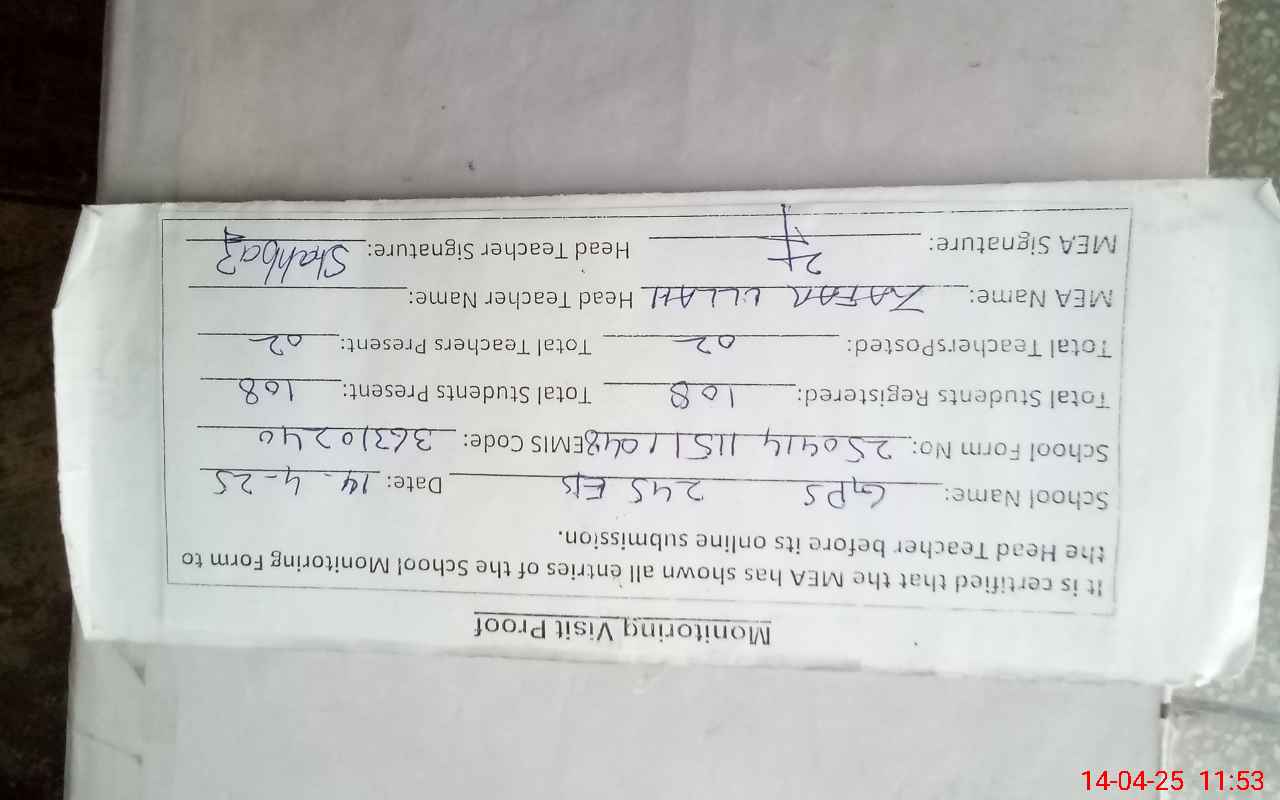 Monitoring Visit Proof
It is certified that the MEA has shown all entries of the School Monitoring Form to
the Head Teacher before its online submission.
School Name: GPS 245 EB Date: 14-4-25
School Form No: 250414 1151 1048 EMIS Code: 36310240
Total Students Registered: 108 Total Students Present: 108
Total TeachersPosted: 02 Total Teachers Present: 02
MEA Name: ZAFAR ULLAH Head Teacher Name:
MEA Signature: Head Teacher Signature: Shahbaz
14-04-25 11:53